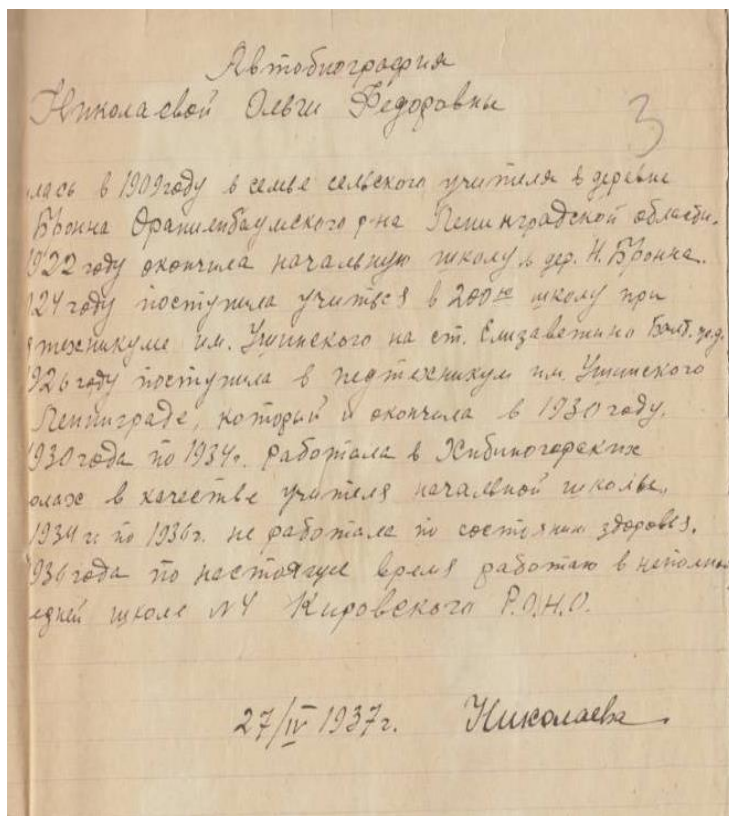 Автобиография
Николаевой Ольги Федоровны
3
лась в 1909 году в семье сельского учителя в деревне
Бронна Ораниенбаумского р-на Ленинградской области.
1922 году окончила начальную школу в дер. Н. Бронна.
924 году поступила учиться в 200ю школу при
техникуме им. Ушинского на ст. Елизаветино Балт. ж.д.
1926 году поступила в педтехникум им. Ушинского
Ленинграде, который и окончила в 1930 году.
1930 года по 1934 г. работала в Хибиногорских
олах в качестве учителя начальной школы.
1934 г. по 1936 г. не работала по состоянию здоровья.
936 года по настоящее время работаю в неполной
едней школе №4 Кировского Р.О.Н.О.
27/IV 1937 г. Николаева